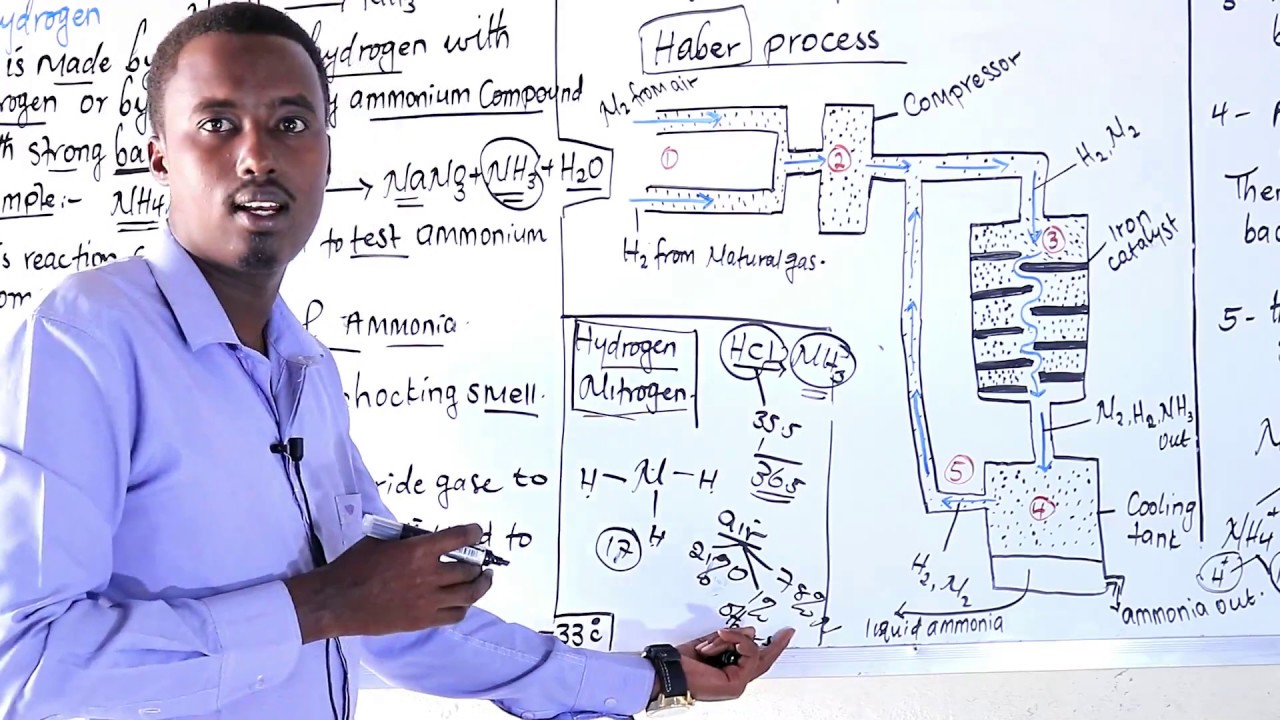 ydrogen
is made by hydrogen with
rogen or by ammonium Compound
th strong ba
→ NaNO3 + NH3 + H2O
mple:- NH4
is reaction to test ammonium
om
Ammonia.
hocking smell.
ride gase to
to
-33°C
Haber process
N2 from air
Compressor
1
2
H2 from Natural gas.
H2, N2
3
Iron
catalyst
N2, H2, NH3
out
5
4
Cooling
tank
H2, N2
liquid ammonia
ammonia out.
Hydrogen
Nitrogen
HCl
NH3
35.5
36.5
H-N-H
H
17
air
21%
78%
4-
The
bac
5- t
NH4+
4+